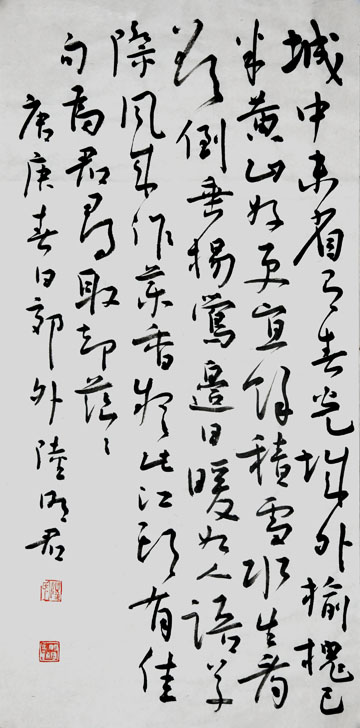 城中未省有春光城外榆槐已
半黃山好更宜餘積雪水生看
欲倒垂楊鶯邊日暖如人語草
際風來作藥香疑此江頭有佳
句為君尋取却茫〻
唐庚春日郊外 陸明君